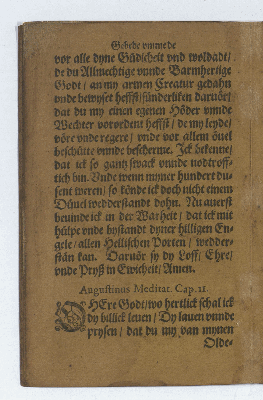 Gebede vmme de
vor alle dyne Güdicheit vnd woldadt/
de du Allmechtige vnde Barmhertige
Godt / an my armen Creatur gedahn
vnde bewyset heffst / sünderliken daruör/
dat du my einen egenen Höder vnnde
Wechter vorordent heffst / de my leyde/
vöre vnde regere / vnde vor allem övel
beschütte vnnde bescherme. Ick bekenne/
dat ick so gantz swack vnnde nodtroff-
tich bin. Vnde wenn myner hundert du-
sent weren / so könde ick doch nicht einem
Düuel wedderstandt dohn. Nu auerst
beuinde ick in der Warheit / dat ick mit
hülpe vnde bystandt dyner hilligen En-
gele / allen Hellischen Porten / wedder-
stän kan. Daruör sy dy Loff / Ehre/
vnde Pryß in Ewicheit / Amen.
Augustinus Meditat. Cap. 11.
OHEre Godt / wo hertlick schal ick
dy billick leuen / Dy lauen vnnde
prysen / dat du my van mynen
Olde-